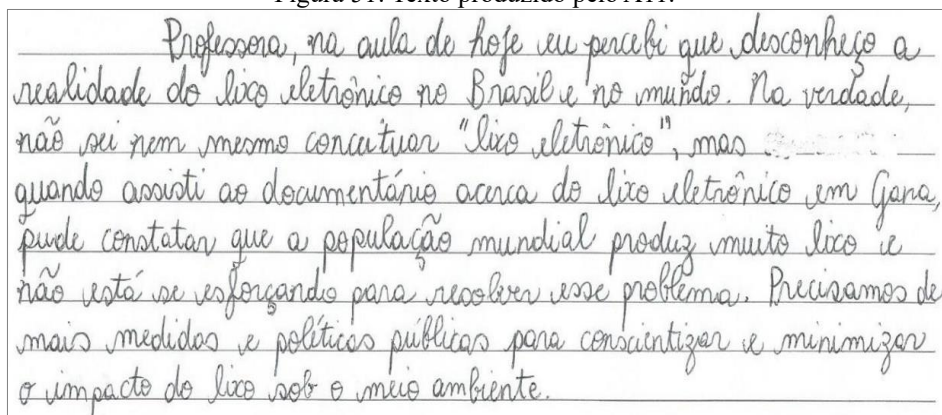 Professora, na aula de hoje eu percebi que desconheço a
realidade do lixo eletrônico no Brasil e no mundo. Na verdade,
não sei nem mesmo conceituar "lixo eletrônico", mas
quando assisti ao documentário acerca do lixo eletrônico em Gana,
pude constatar que a população mundial produz muito lixo e
não está se esforçando para resolver esse problema. Precisamos de
mais medidas e políticas públicas para conscientizar e minimizar
o impacto do lixo sob o meio ambiente.